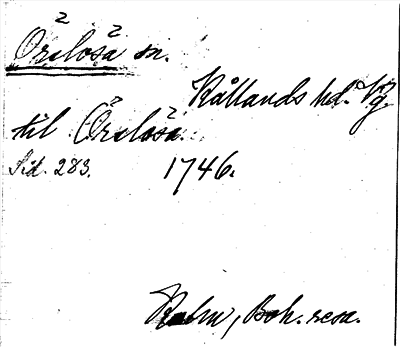 Örslösa sn.
Kållands hd. Vg.
till Örslösa
Sid. 283. 1746.
Kalm, Boh. resa.